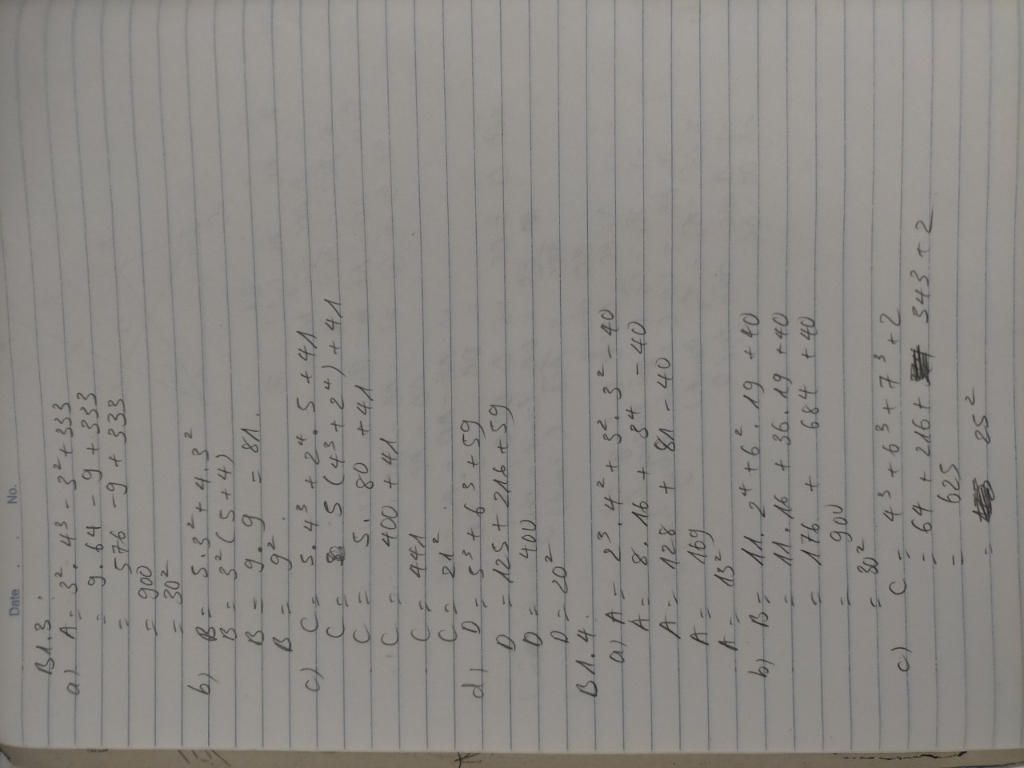 Date . . No.
B1.3:
a) A = 3² . 4³ - 3² + 333
= 9 . 64 - 9 + 333
= 576 - 9 + 333
= 900
= 30²
b) B = 5 . 3² + 4 . 3²
B = 3² (5 + 4)
B = 9 . 9 = 81.
B = 9²
c) C = 5 . 4³ + 2⁴ . 5 + 41
C = 5 (4³ + 2⁴) + 41
C = 5 . 80 + 41
C = 400 + 41
C = 441
C = 21²
d) D = 5³ + 6³ + 59
D = 125 + 216 + 59
D = 400
D = 20²
B1.4.
a) A = 2³ . 4² + 3² . 3² - 40
A = 8 . 16 + 3⁴ - 40
A = 128 + 81 - 40
A = 169
A = 13²
b) B = 11 . 2⁴ + 6² . 19 + 40
= 11 . 16 + 36 . 19 + 40
= 176 + 684 + 40
= 900
= 30²
c) C = 4³ + 6³ + 7³ + 2
= 64 + 216 + 343 + 2
= 625
= 25²